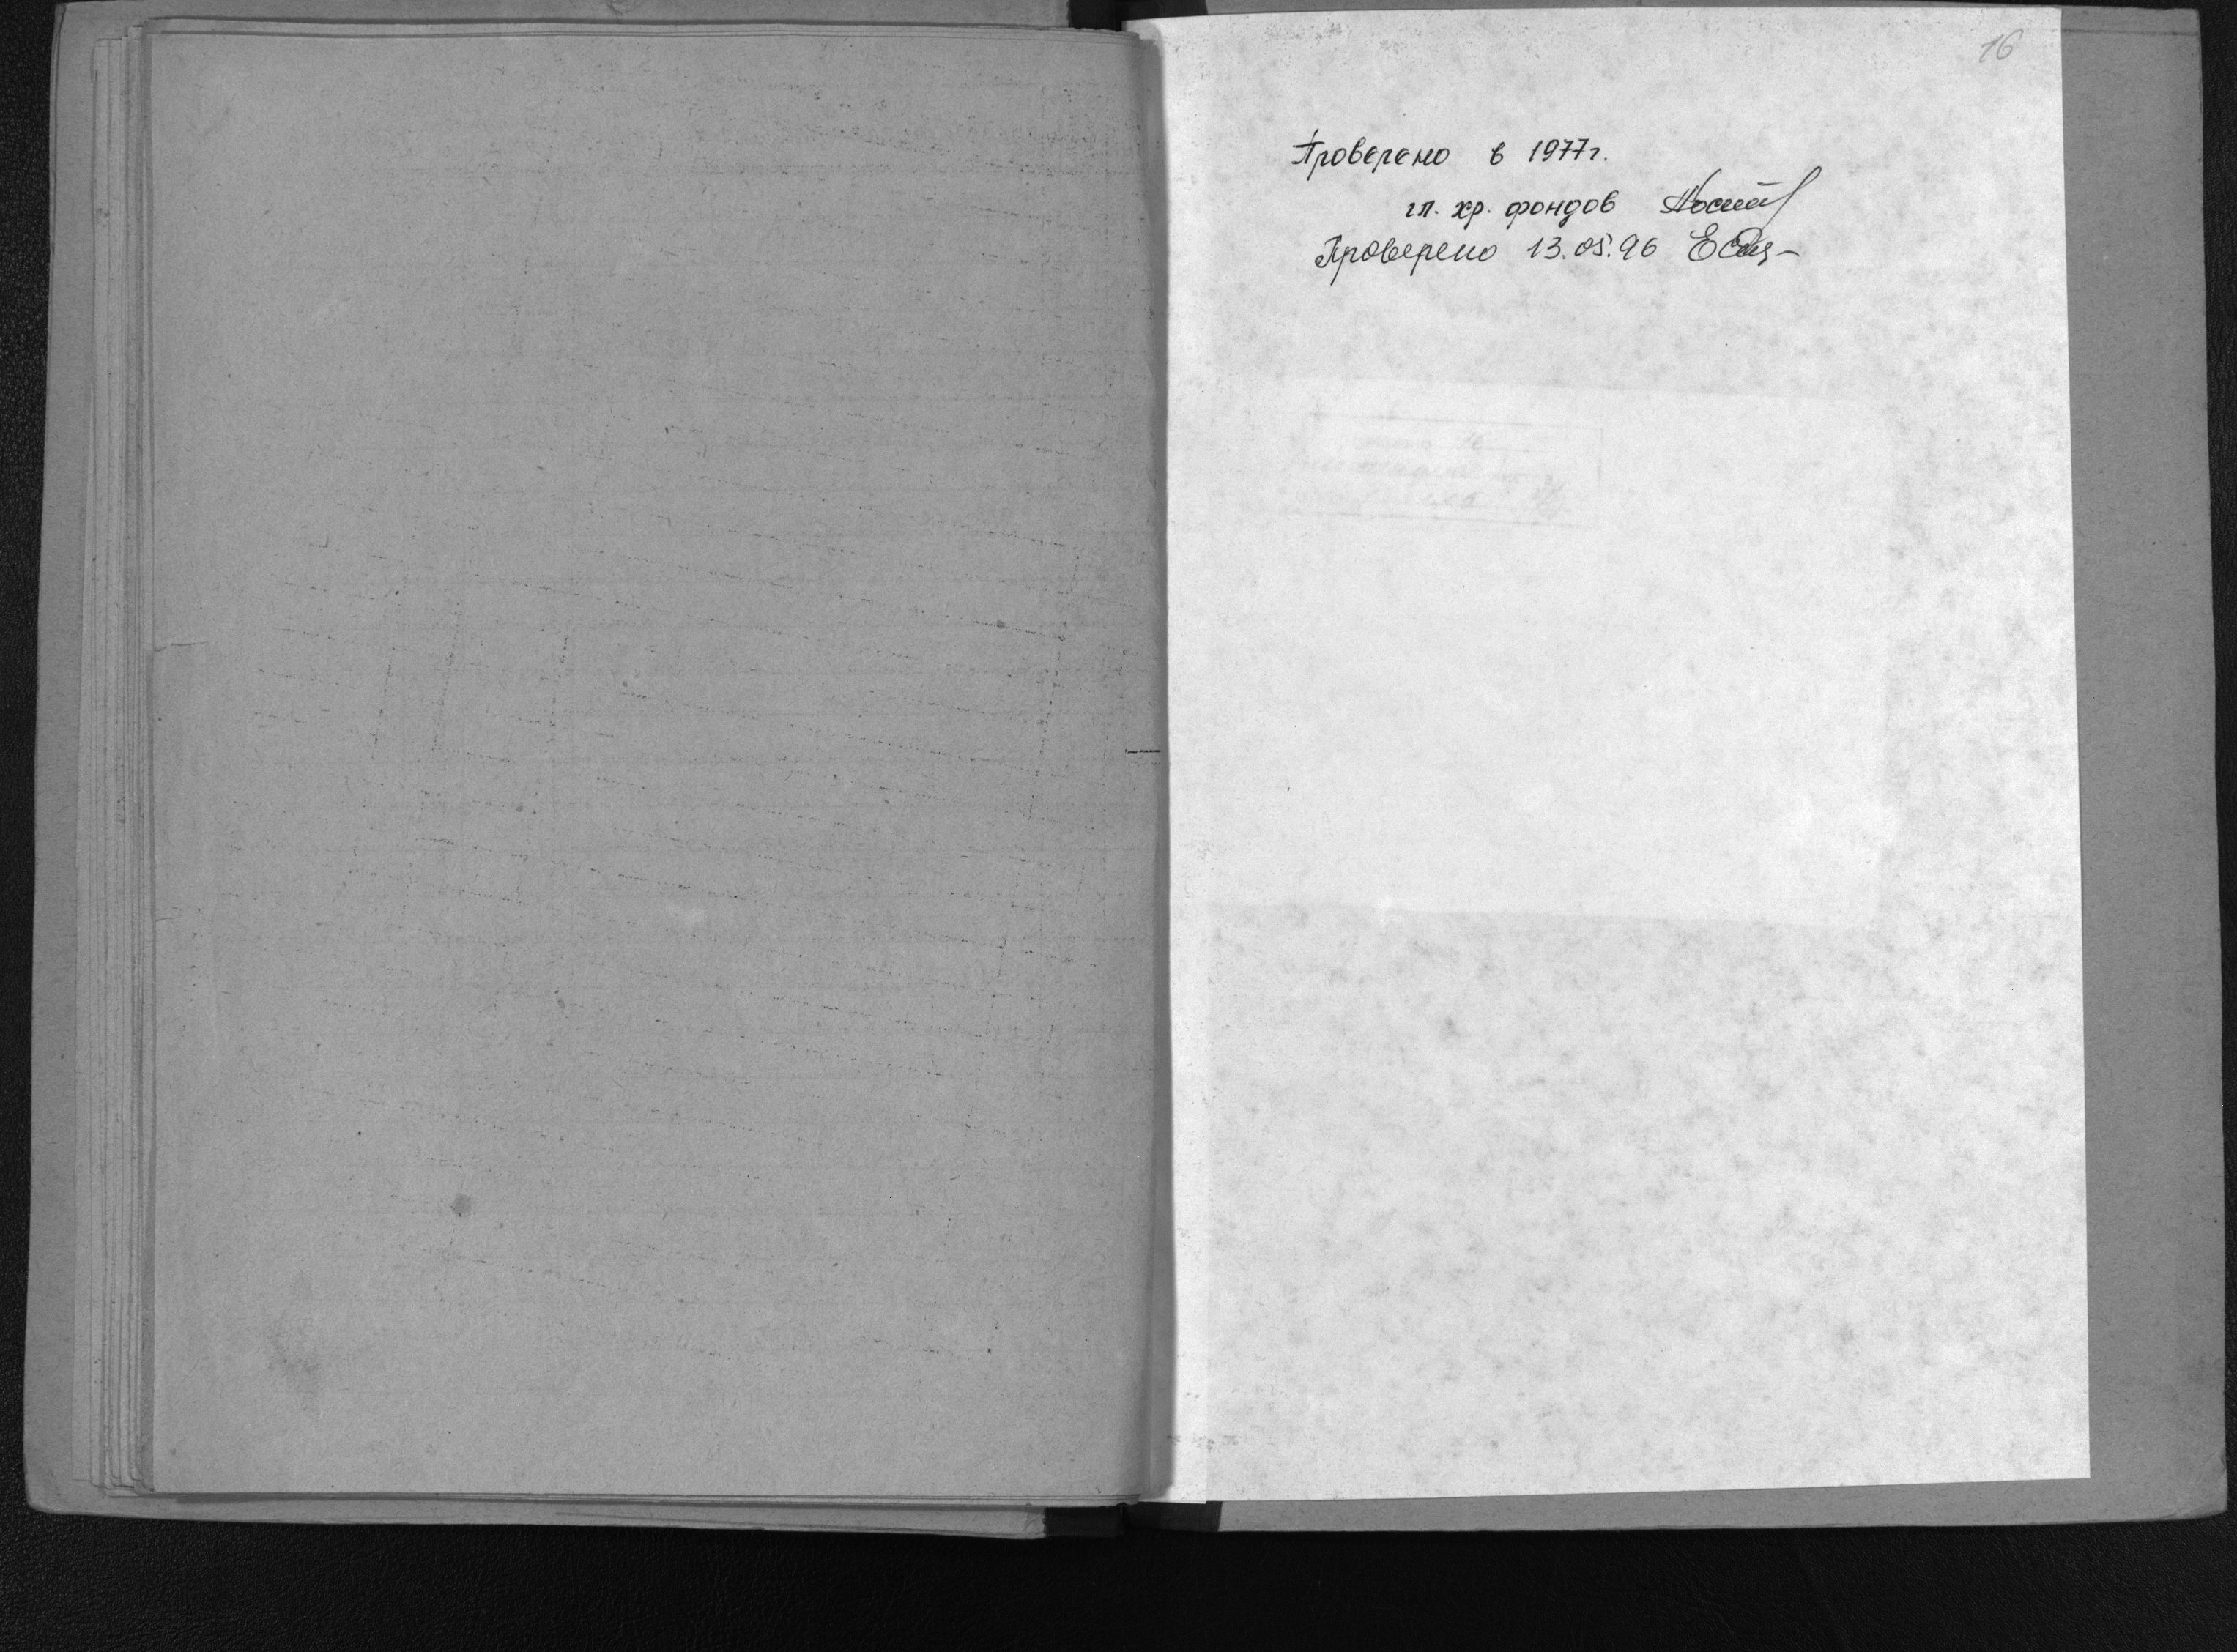 16
Проверено в 1977г.
гл. хр. фондов
Проверено 13.05.96